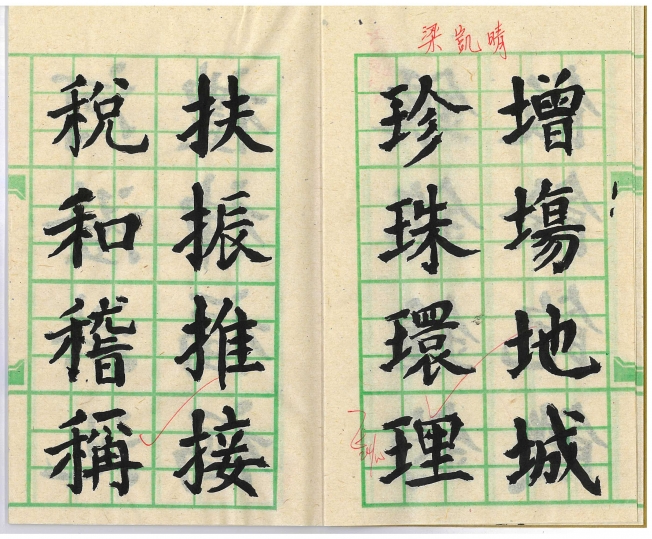 梁凱晴
增塲地城
珍珠環理
扶振推接
稅和稽稱